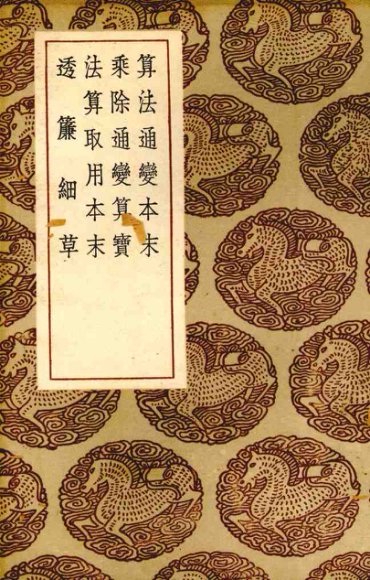 算法通變本末
乘除通變算寶
法算取用本末
透簾細草